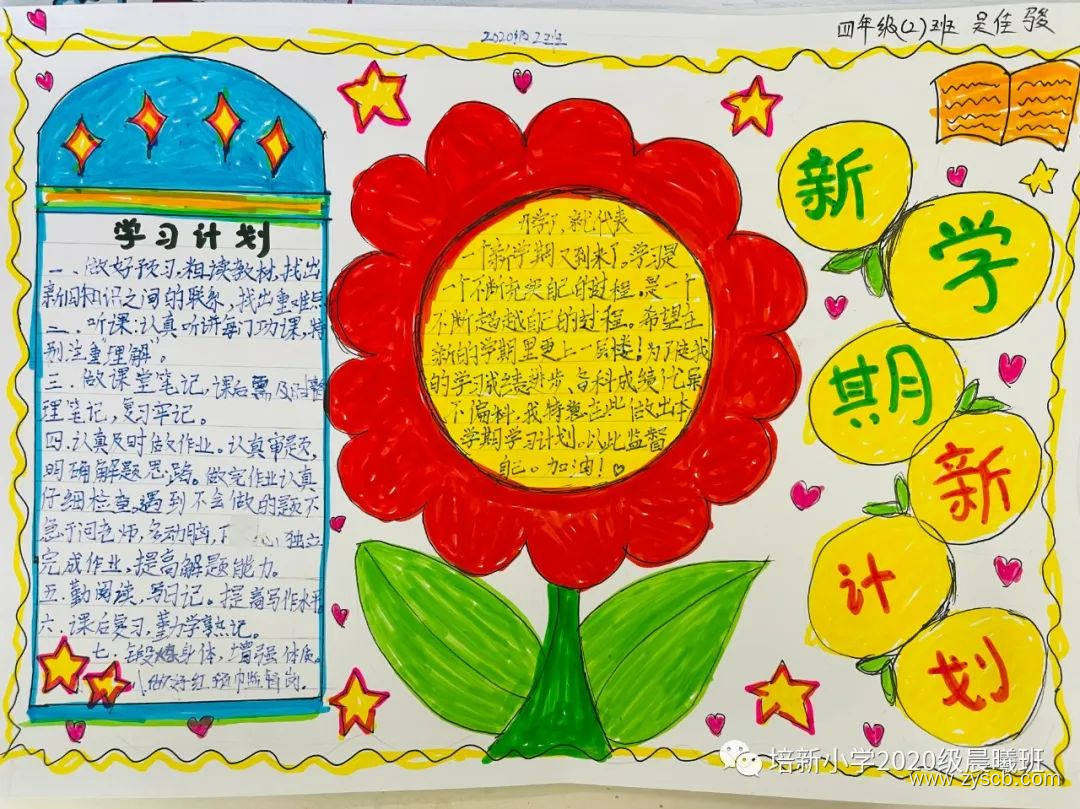 四年级(2)班 吴佳骏
2020级2班
学习计划
一、做好预习,粗读教材,找出
新旧知识之间的联系,找出重难点
二、听课:认真听讲每门功课,特
别注重"理解"。
三、做课堂笔记,课后需及时整
理笔记,复习牢记。
四、认真及时做好作业。认真审题,
明确解题思路。做完作业认真
仔细检查,遇到不会做的题不
急于问老师,多动脑, 心,独立
完成作业,提高解题能力。
五、勤阅读,写日记。提高写作水平
六、课后复习,勤学熟记。
七、锻炼身体,增强体质。
八、做好红领巾监督岗.
开学了,就代表
一个新学期又到来了。学习是
一个不断充实自己的过程,是一个
不断超越自己的过程。希望在
新的学期里更上一层楼!为了使我
的学习成绩进步、各科成绩优异
不偏科.我特意在此做出本
学期学习计划。以此监督
自己。加油!
新
学
期
新
计
划
培新小学2020级晨曦班
www.zyscb.com